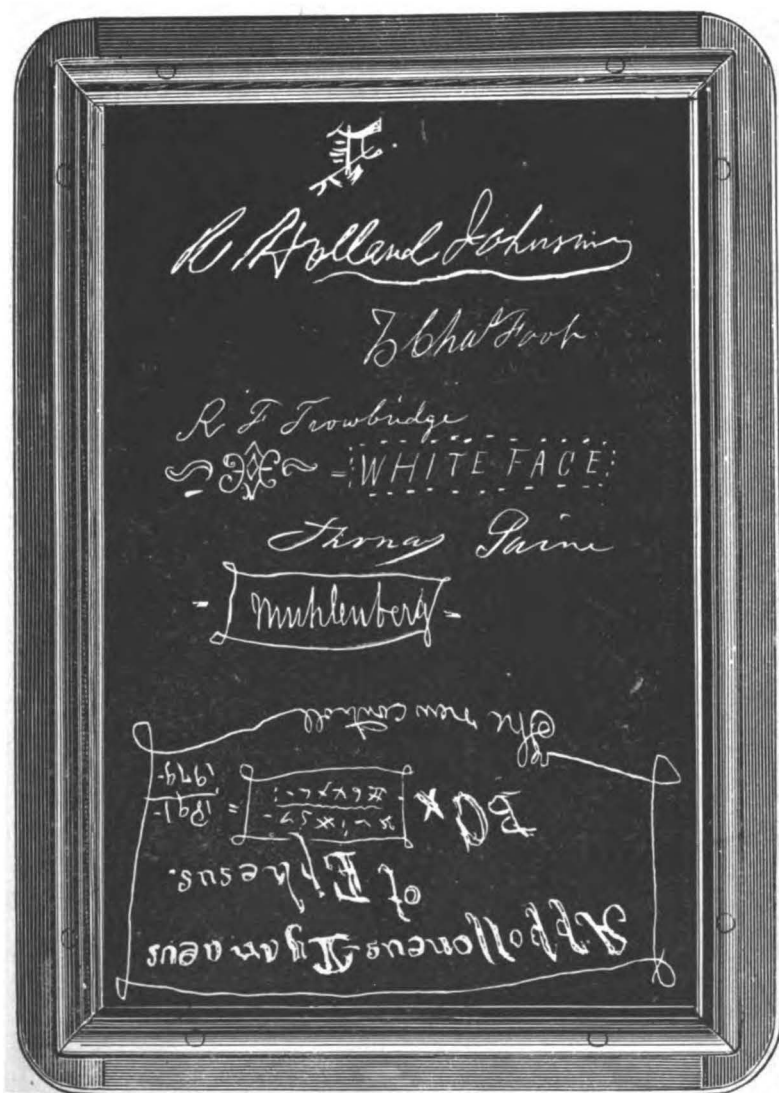 R. Holland Johnson
Foot
R F Trowbridge
= WHITE FACE
Thomas Paine
- Muhlenberg -
Appolloneus-Tyanaeus
of Ephesus.
BC *
The new controll